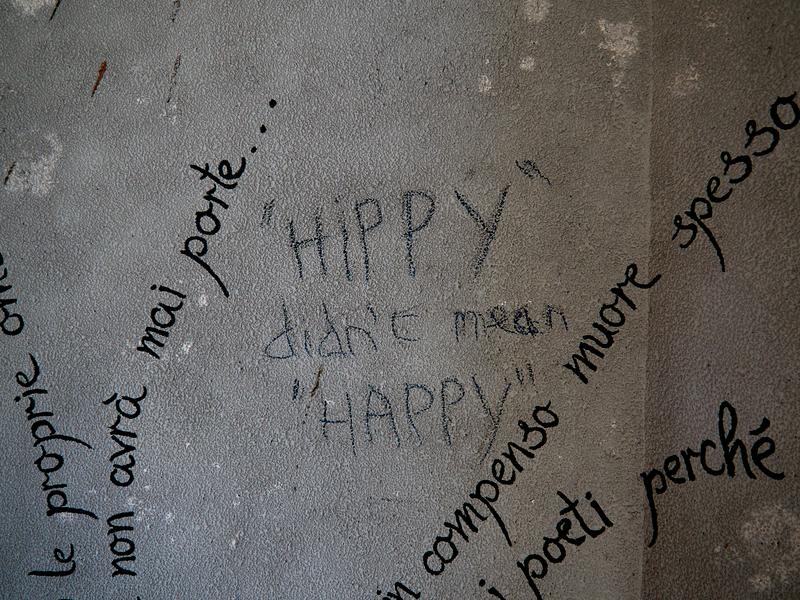 le proprie
non avrà mai porte...
"HiPPY"
didn't mean
"HAPPY"
in compenso muore spesso
i poeti perché